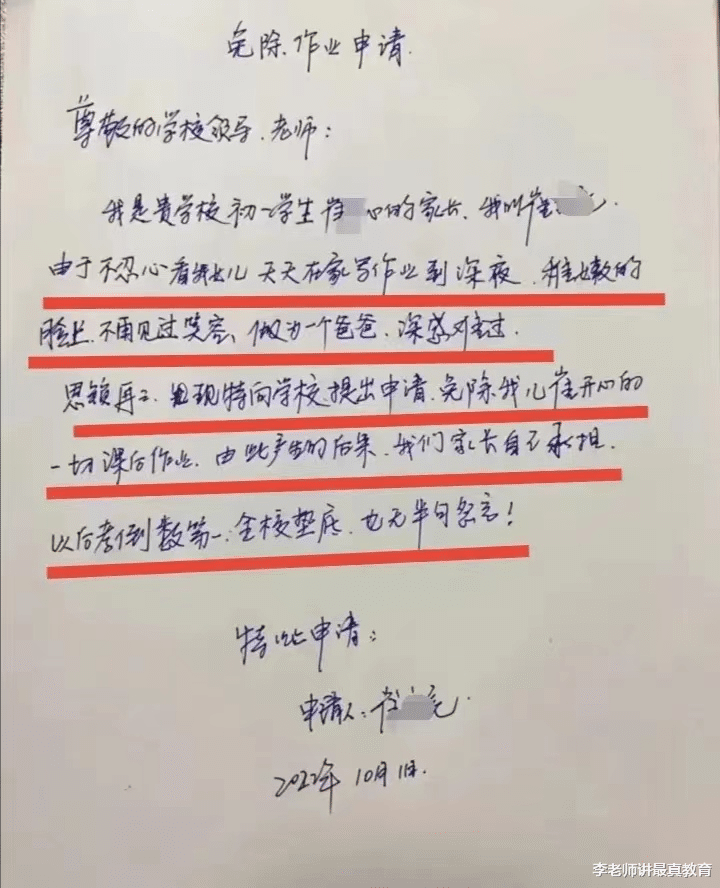 免除作业申请.
尊敬的学校领导、老师:
我是贵学校初一学生崔 心的家长、我叫崔 元.
由于不忍心看我女儿天天在家写作业到深夜、稚嫩的
脸上、不再见过笑容、做为一个爸爸、深感难过.
思锁再三、现特向学校提出申请、免除我儿崔开心的
一切课后作业、由此产生的后果、我们家长自己承担.
以后考倒数第一、全校垫底、也无半句怨言!
特此申请:
申请人:崔 元.
2022年10月1日.
李老师讲最真教育